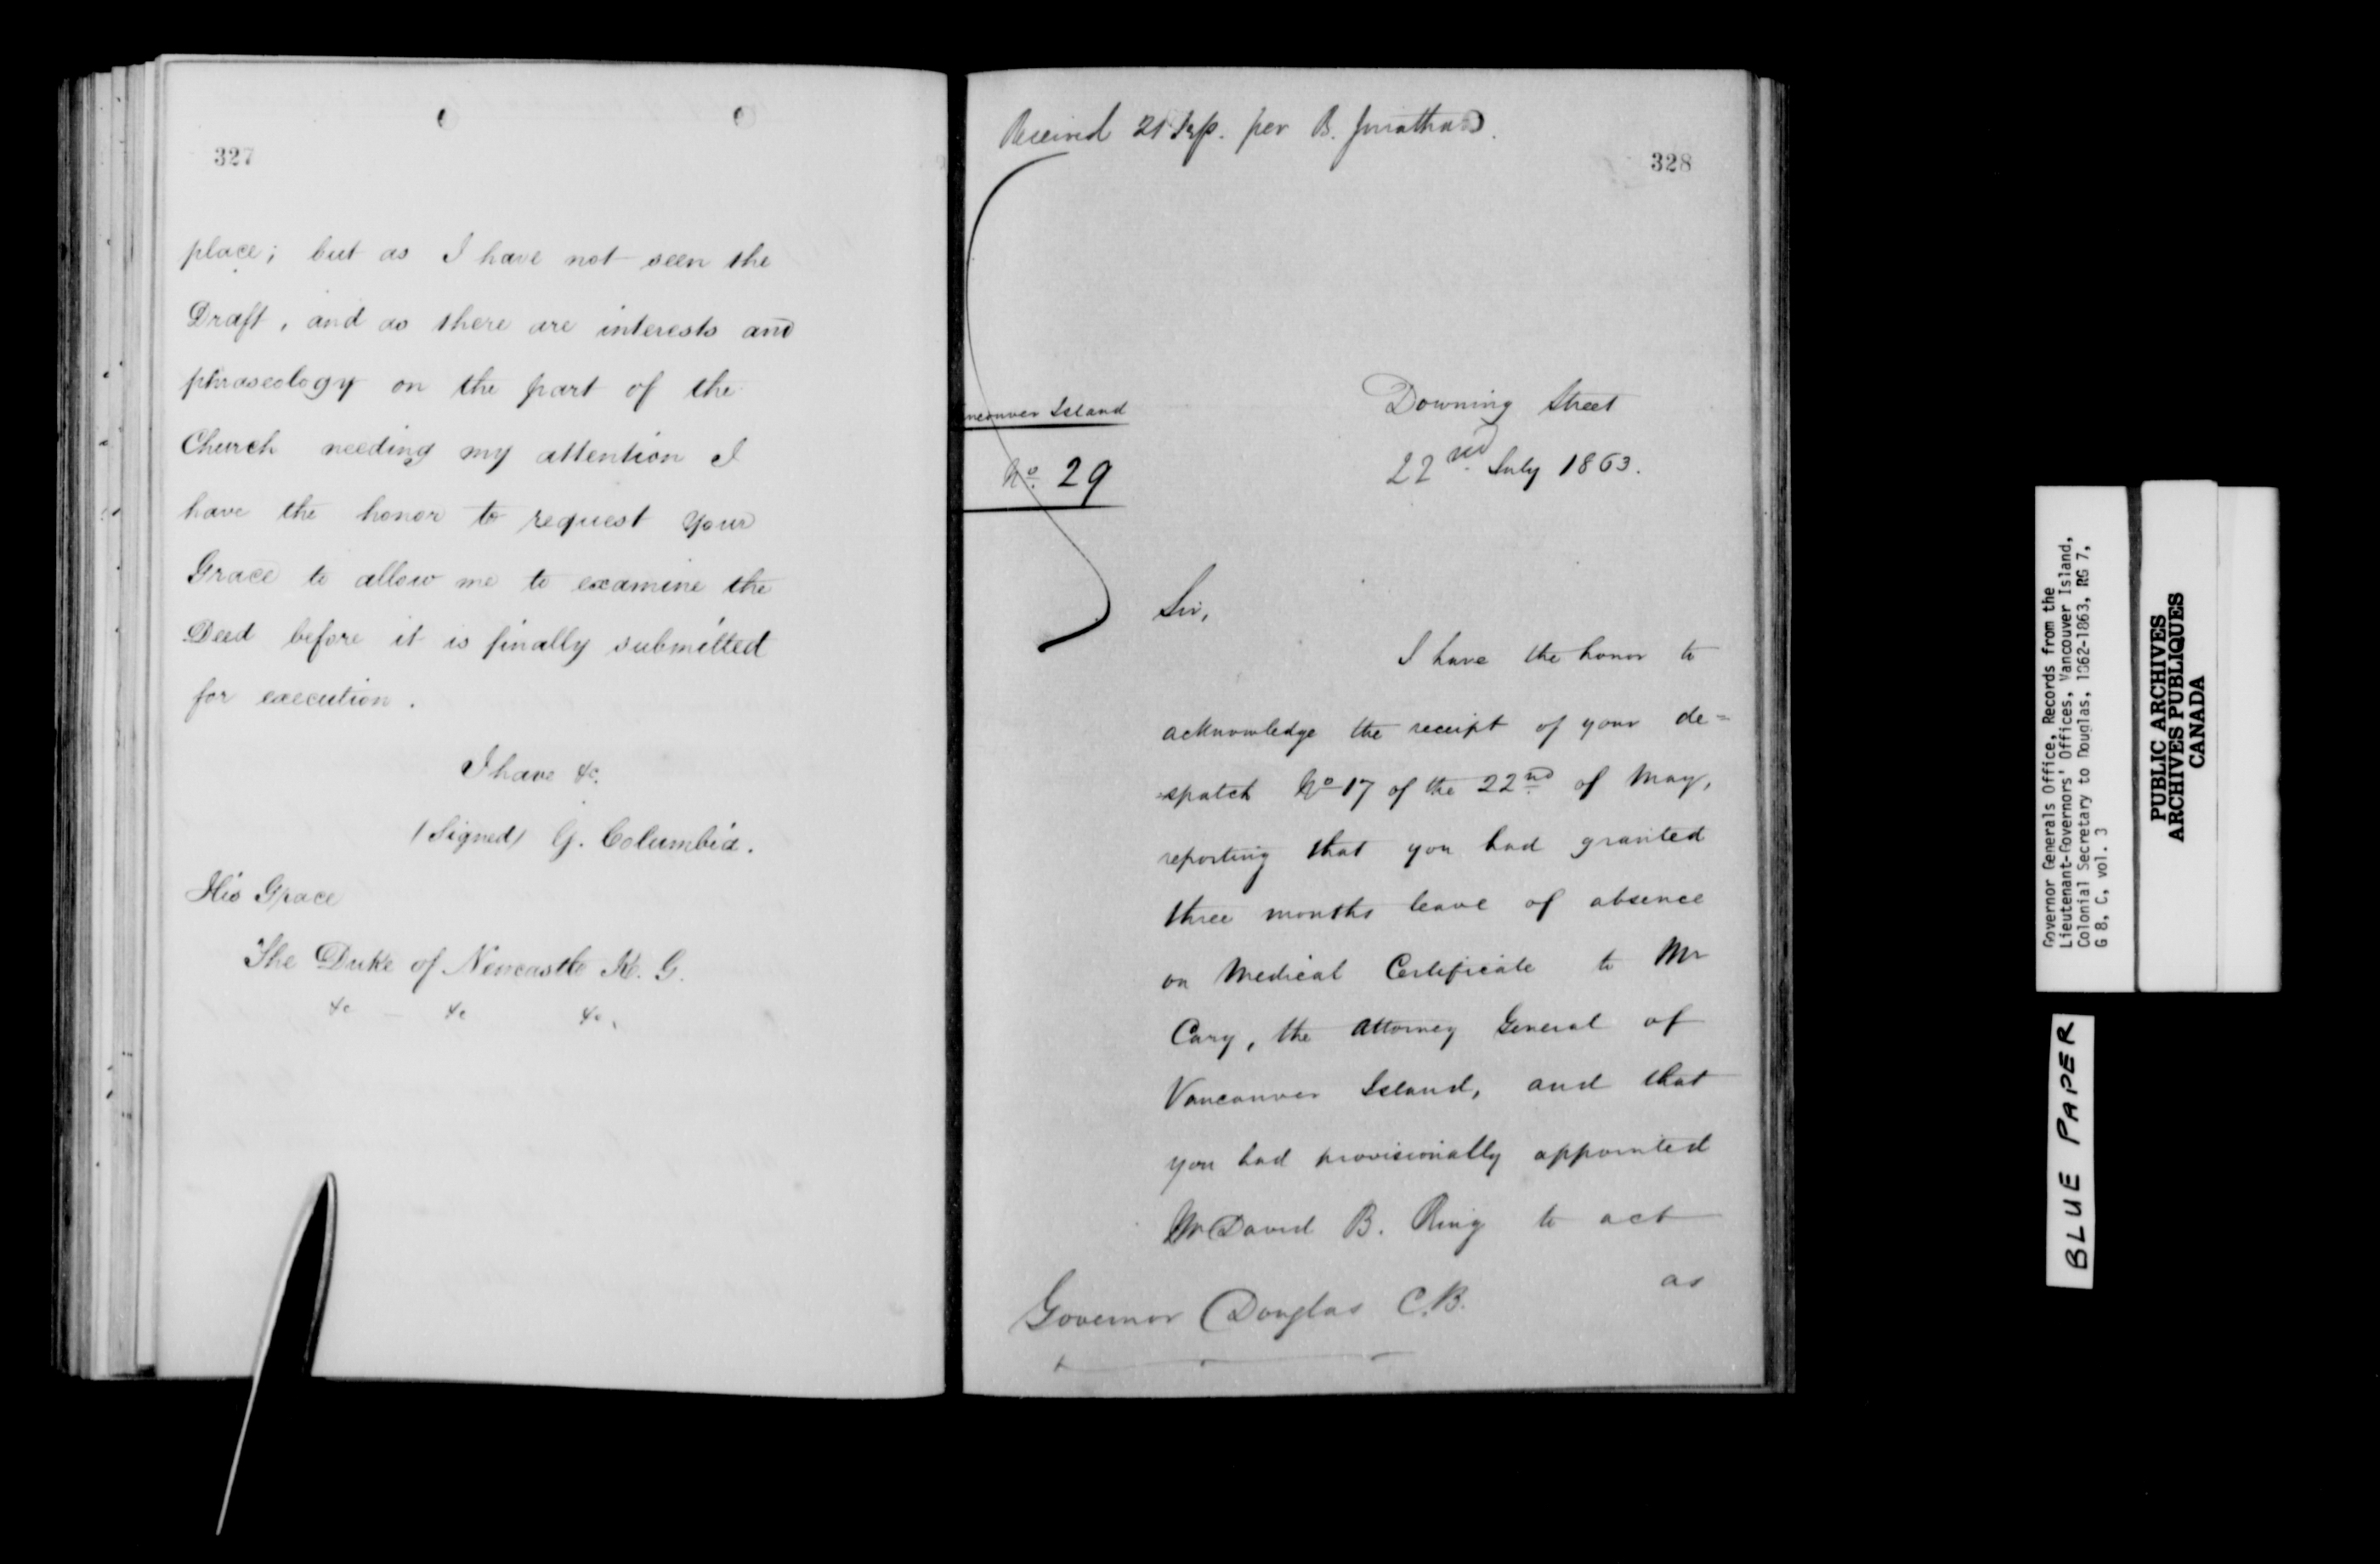 327
place; but as I have not seen the
Draft, and as there are interests and
phraseology on the part of the
Church needing my attention I
have the honor to request Your
Grace to allow me to examine the
Deed before it is finally submitted
for execution.
I have &c.
(Signed) G. Columbia.
His Grace
The Duke of Newcastle K. G.
&c — &c &c.
Received 21 Sep. per B. Jonathan.
328
ncouver Island
No. 29
Downing Street
22nd July 1863.
Sir,
I have the honor to
acknowledge the receipt of your de=
spatch No 17 of the 22nd of May,
reporting that you had granted
three months leave of absence
on Medical Certificate to Mr
Cary, the Attorney General of
Vancouver Island, and that
you had provisionally appointed
Mr David B. Ring to act
as
Governor Douglas C.B.
Governor Generals Office, Records from the
Lieutenant-Governors' Offices, Vancouver Island,
Colonial Secretary to Douglas, 1862-1863, RG 7,
G 8, C, vol. 3
PUBLIC ARCHIVES
ARCHIVES PUBLIQUES
CANADA
BLUE PAPER